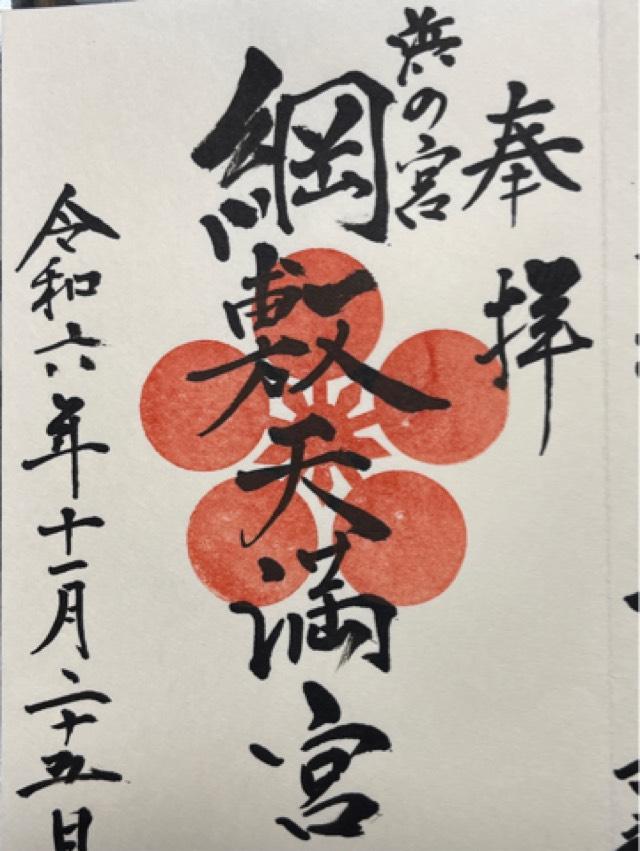 奉拝
浜の宮
綱敷天満宮
令和六年十一月二十五日